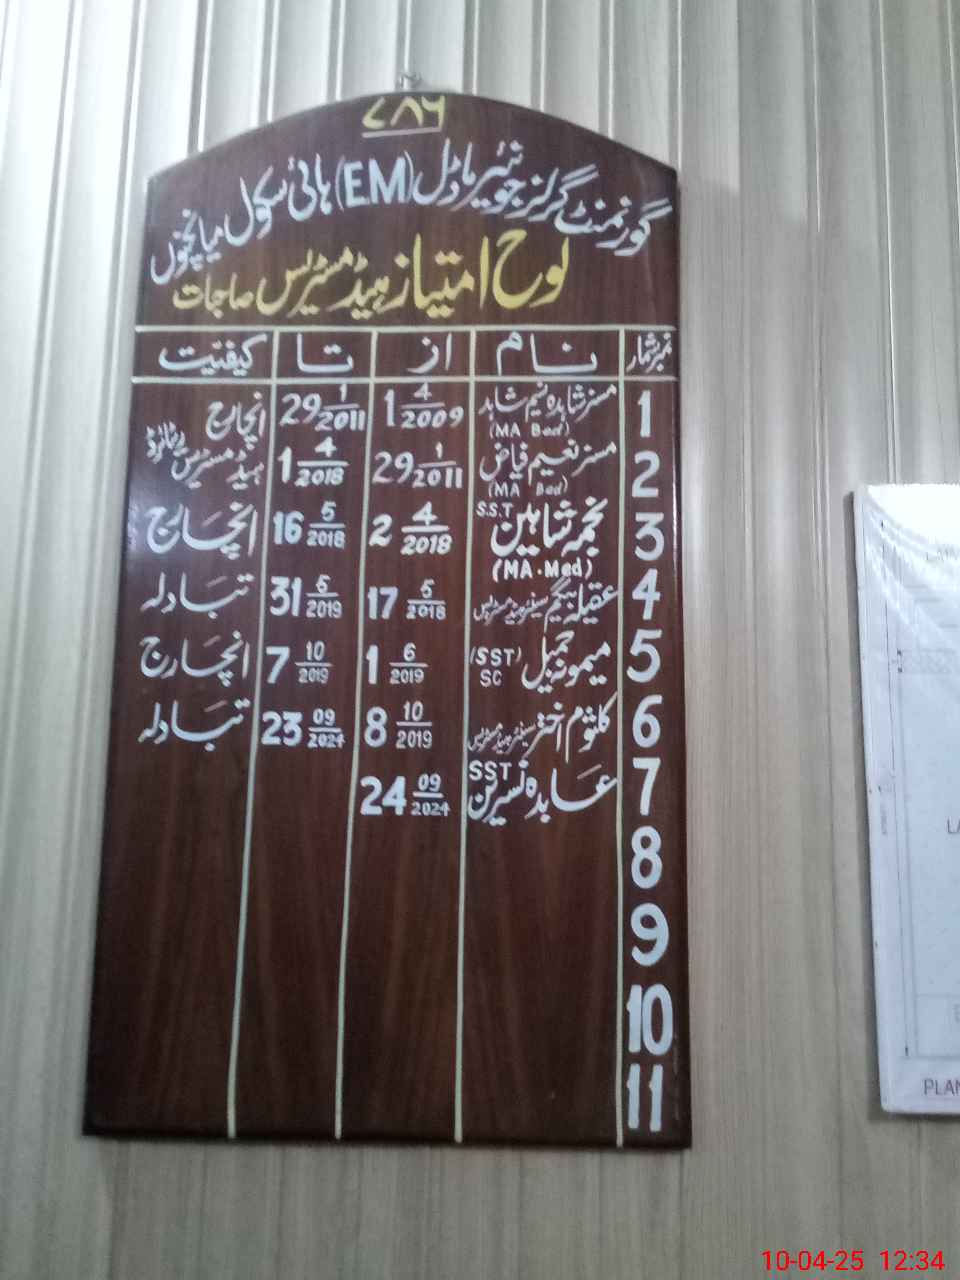 ۷۸۶
گورنمنٹ گرلز جونیئر ماڈل (EM) ہائی سکول میانچنوں
لوح امتیاز ہیڈ مسٹریس صاحبات
نمبر شمار نام از تا کیفیت
1 مسز شاہدہ نسیم شاہد (MA Bed) 1 4/2009 29 1/2011 انچارج
2 مسز نعیم فیاض (MA Bed) 29 1/2011 1 4/2018 ہیڈ مسٹریس ریٹائرڈ
3 نجمہ شاہین S.S.T (MA.Med) 2 4/2018 16 5/2018 انچارج
4 عقیلہ بیگم سینئر ہیڈ مسٹریس 17 5/2018 31 5/2019 تبادلہ
5 میمونہ جمیل (SST) SC 1 6/2019 7 10/2019 انچارج
6 کلثوم اختر سینئر ہیڈ مسٹریس 8 10/2019 23 09/2024 تبادلہ
7 عابدہ نسرین SST 24 09/2024
8
9
10
11
PLAN
10-04-25 12:34